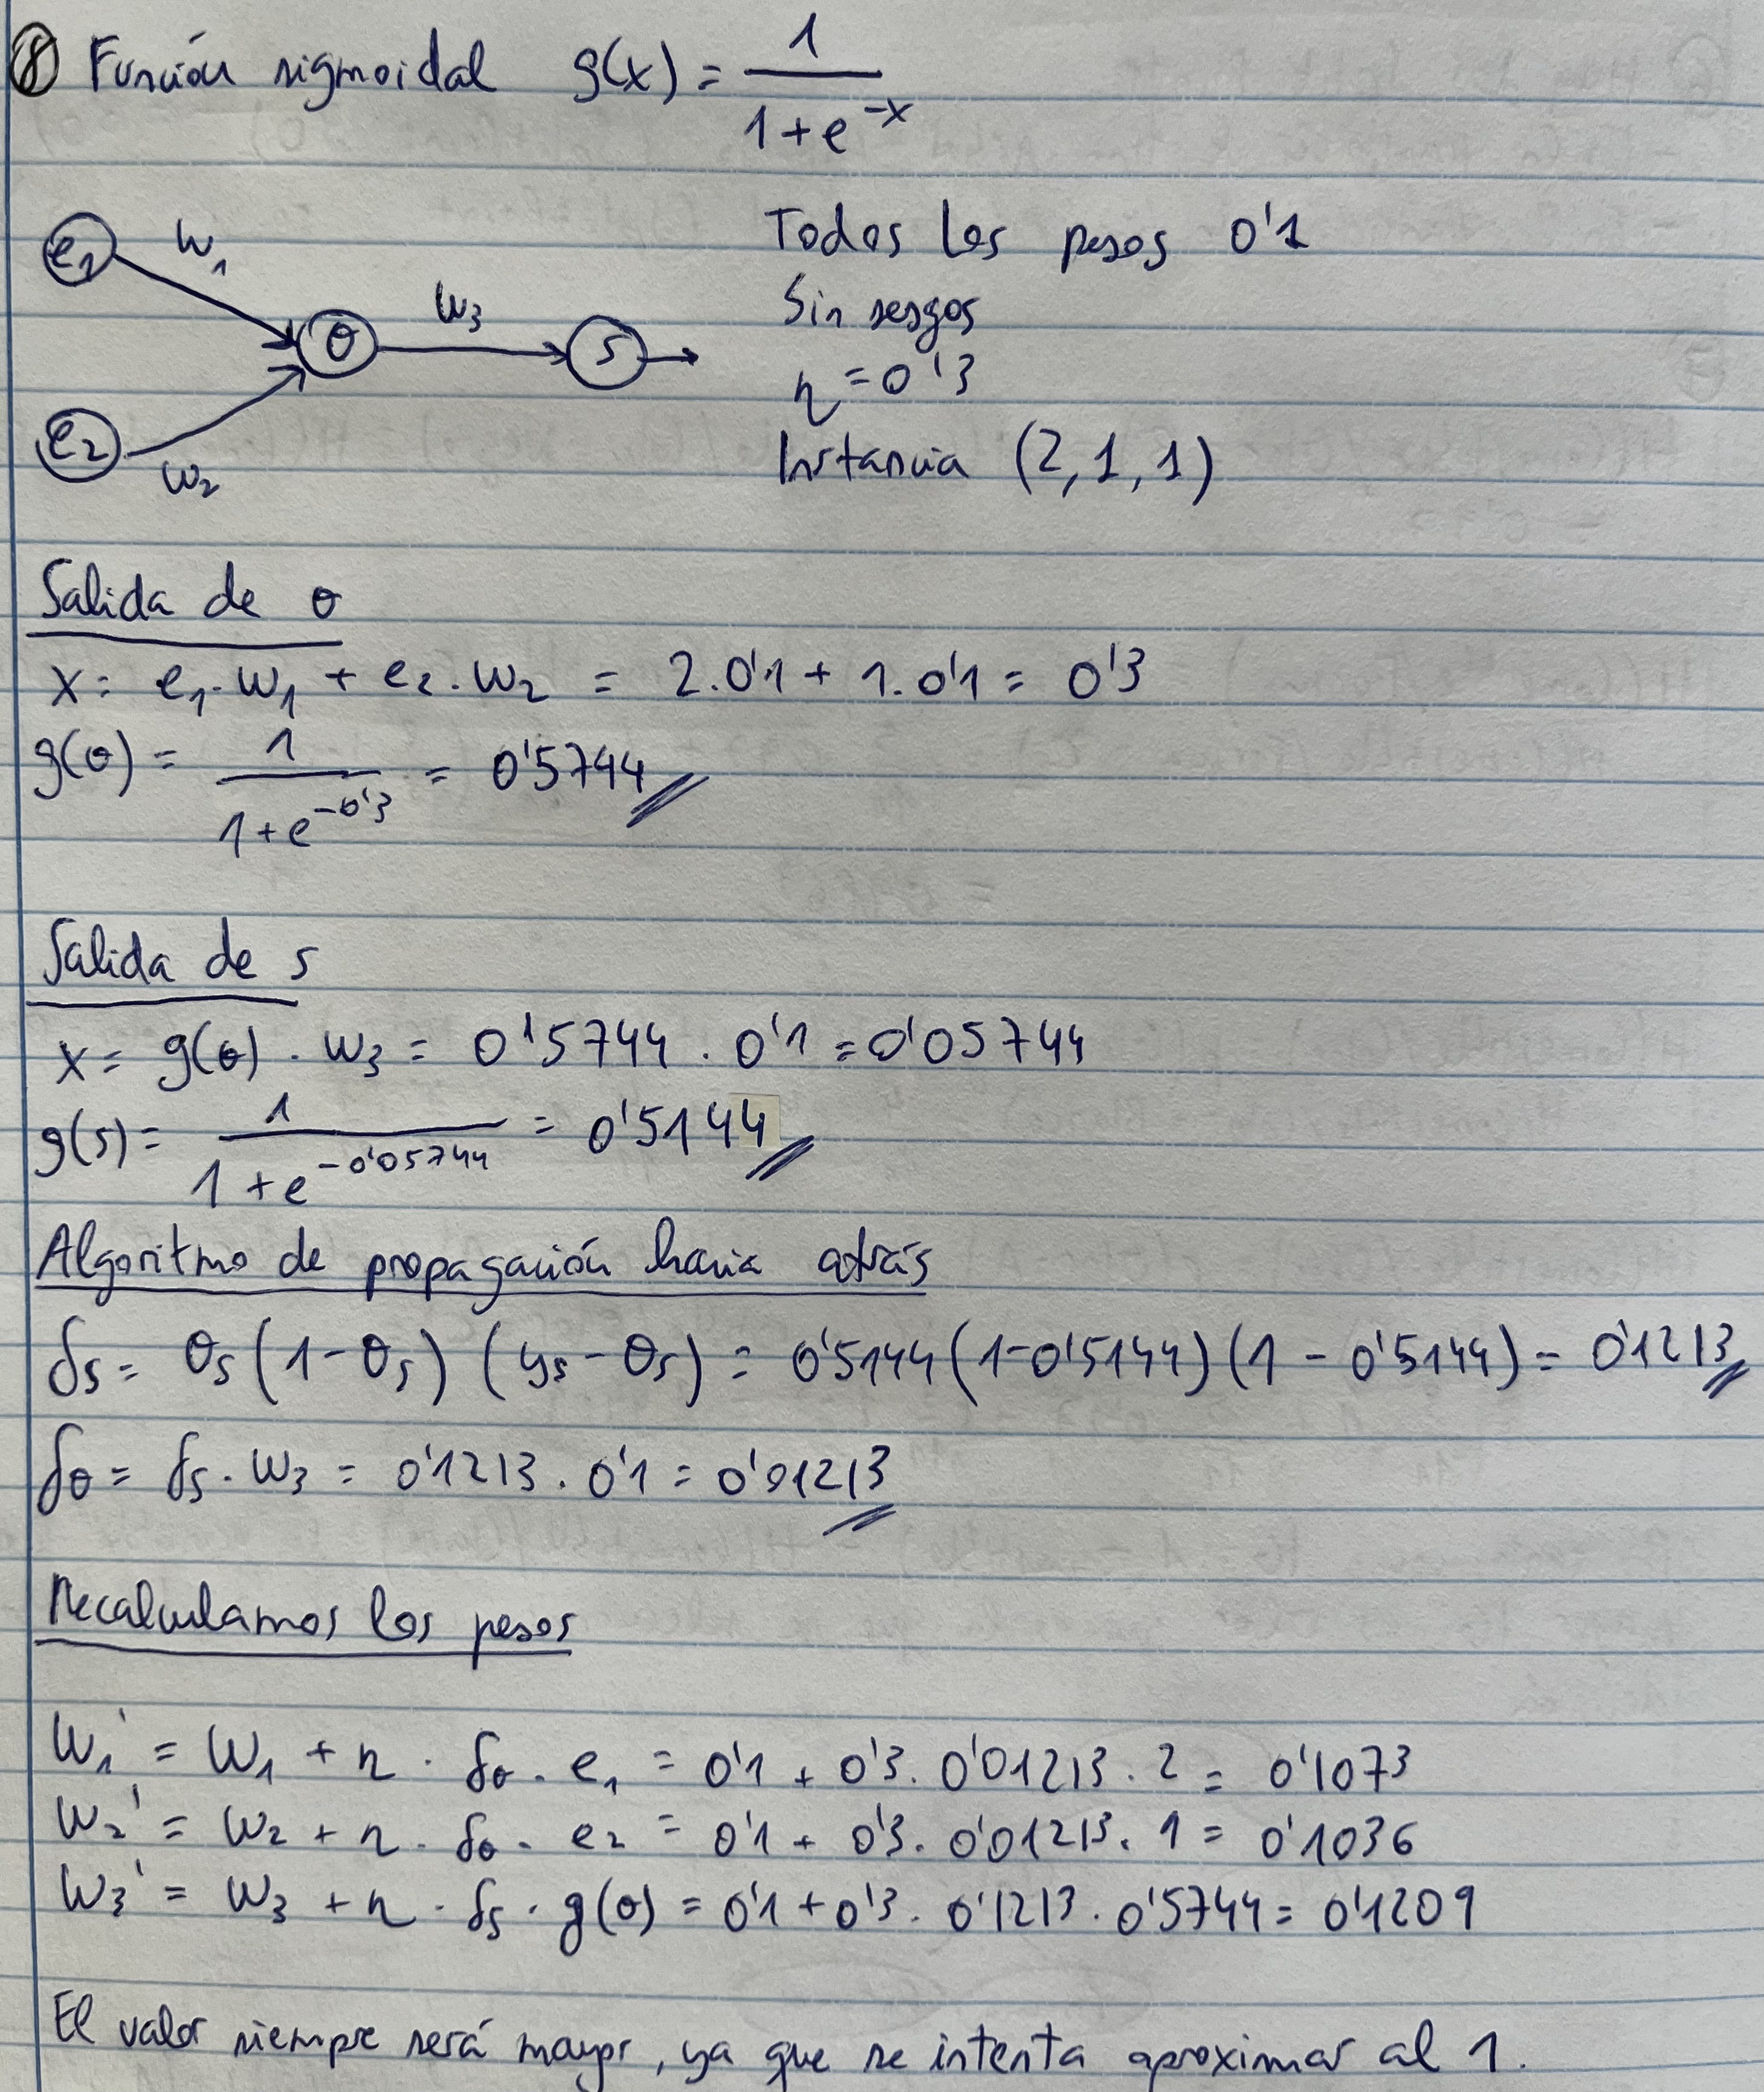 ⑧ Función sigmoidal g(x) = 1 / (1 + e^-x)
e1 w1 Todos los pesos 0'1
w3 Sin sesgos
θ s η = 0'3
e2 w2 Instancia (2, 1, 1)
Salida de θ
x = e1 · w1 + e2 · w2 = 2 · 0'1 + 1 · 0'1 = 0'3
g(θ) = 1 / (1 + e^-0'3) = 0'5744
Salida de s
x = g(θ) · w3 = 0'5744 · 0'1 = 0'05744
g(s) = 1 / (1 + e^-0'05744) = 0'5144
Algoritmo de propagación hacia atrás
δs = θs (1 - θs) (ys - θs) = 0'5144 (1 - 0'5144) (1 - 0'5144) = 0'1213
δθ = δs · w3 = 0'1213 · 0'1 = 0'01213
Recalculamos los pesos
w1' = w1 + η · δθ · e1 = 0'1 + 0'3 · 0'01213 · 2 = 0'1073
w2' = w2 + η · δθ · e2 = 0'1 + 0'3 · 0'01213 · 1 = 0'1036
w3' = w3 + η · δs · g(θ) = 0'1 + 0'3 · 0'1213 · 0'5744 = 0'1209
El valor siempre será mayor, ya que se intenta aproximar al 1.